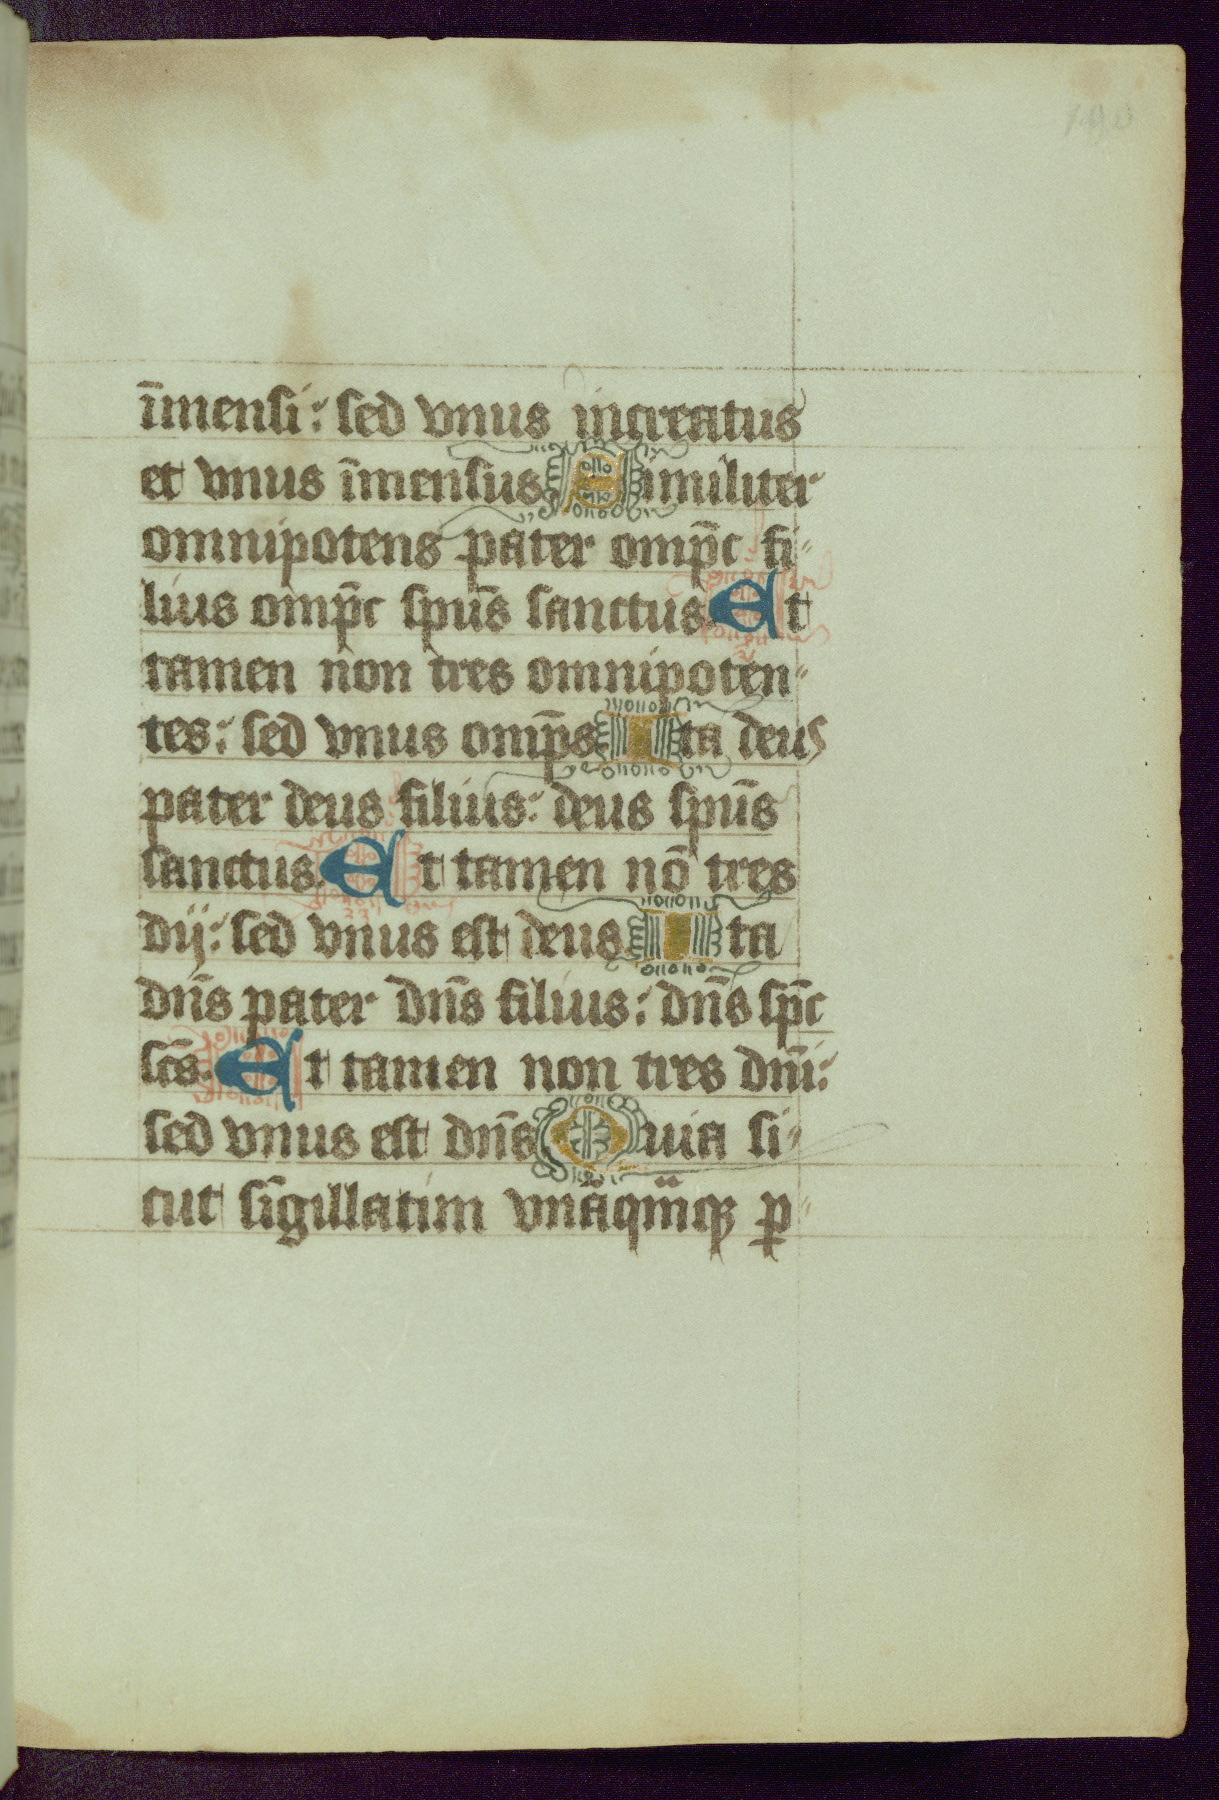 īmensi: sed vnus increatus
et vnus īmensus Similiter
omnipotens pater omp̄c fi-
lius omp̄c spūs sanctus Et
tamen non tres omnipoten-
tes: sed vnus omp̄s Ita deus
pater deus filius: deus spūs
sanctus. Et tamen nō tres
dij: sed vnus est deus Ita
dn̄s pater dn̄s filius: dn̄s sp̄c
sc̄s. Et tamen non tres dn̄i:
sed vnus est dn̄s Quia si-
cut sīgillatim vnāqm̄qꝫ ꝑ-